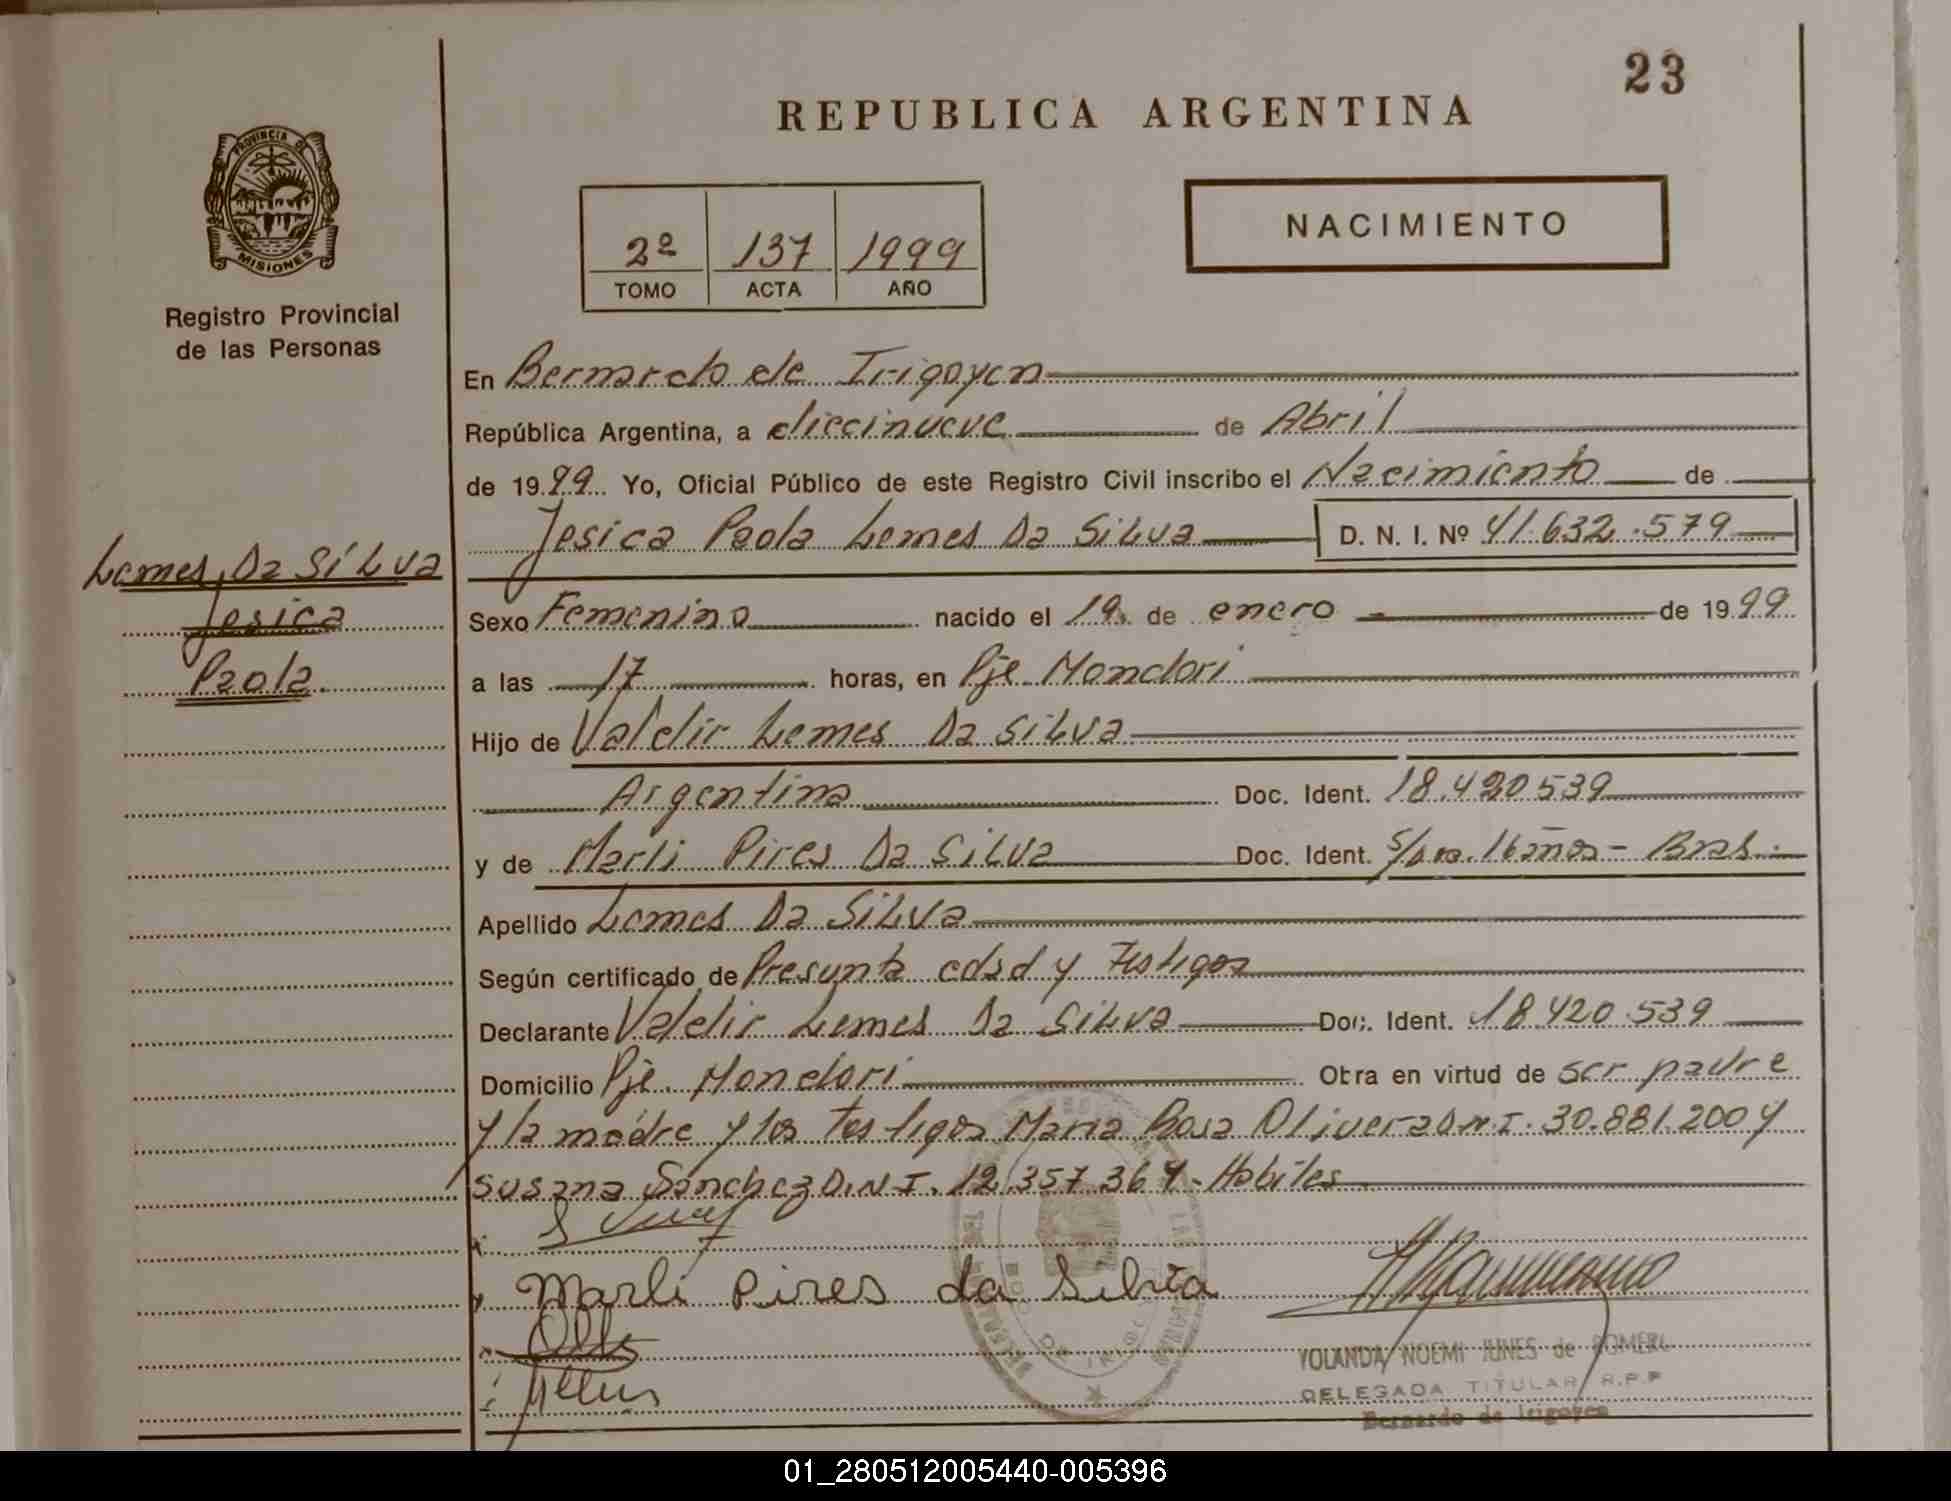 23
REPUBLICA ARGENTINA
PROVINCIA DE
MISIONES
Registro Provincial
de las Personas
2º 137 1999
TOMO ACTA AÑO
NACIMIENTO
En Bernardo de Irigoyen
República Argentina, a diecinueve de Abril
de 1999 Yo, Oficial Público de este Registro Civil inscribo el Nacimiento de
Jesica Paola Lemes Da Silva D. N. I. Nº 41.632.579
Lemes Da Silva
Jesica
Paola.
Sexo Femenino nacido el 19 de enero de 1999
a las 17 horas, en Pje Mondori
Hijo de Valdir Lemes Da Silva
Argentina Doc. Ident. 18.420539
y de Marli Pires Da Silva Doc. Ident. 16 años - Bras.
Apellido Lemes Da Silva
Según certificado de Presunta edad y Testigos
Declarante Valdir Lemes Da Silva Doc. Ident. 18.420.539
Domicilio Pje. Mondori Obra en virtud de ser padre
y la madre y los testigos Maria Rosa Olivera D.N.I. 30.881.200 y
susana Sanchez D.N.I. 12.357.364 - Habiles
Marli Pires da Silvia
YOLANDA NOEMI JUNES de ROMERO
DELEGADA TITULAR R.P.P
Bernardo de Irigoyen
01_280512005440-005396